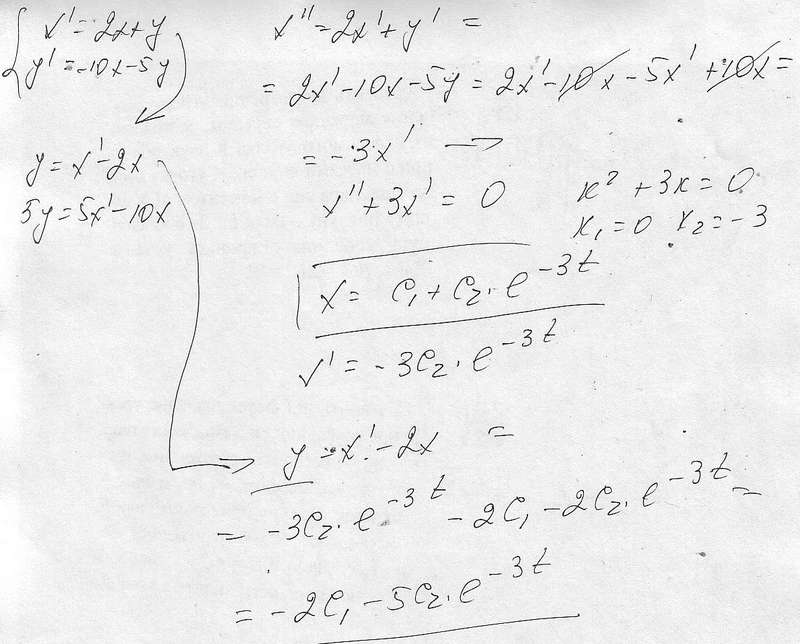 x' = 2x + y
y' = -10x - 5y
y = x' - 2x
5y = 5x' - 10x
x'' = 2x' + y' =
= 2x' - 10x - 5y = 2x' - 10x - 5x' + 10x =
= -3x' →
x'' + 3x' = 0
k² + 3k = 0
k₁ = 0 k₂ = -3
x = C₁ + C₂·e^-3t
x' = -3C₂·e^-3t
→ y = x' - 2x =
= -3C₂·e^-3t - 2C₁ - 2C₂·e^-3t =
= -2C₁ - 5C₂·e^-3t